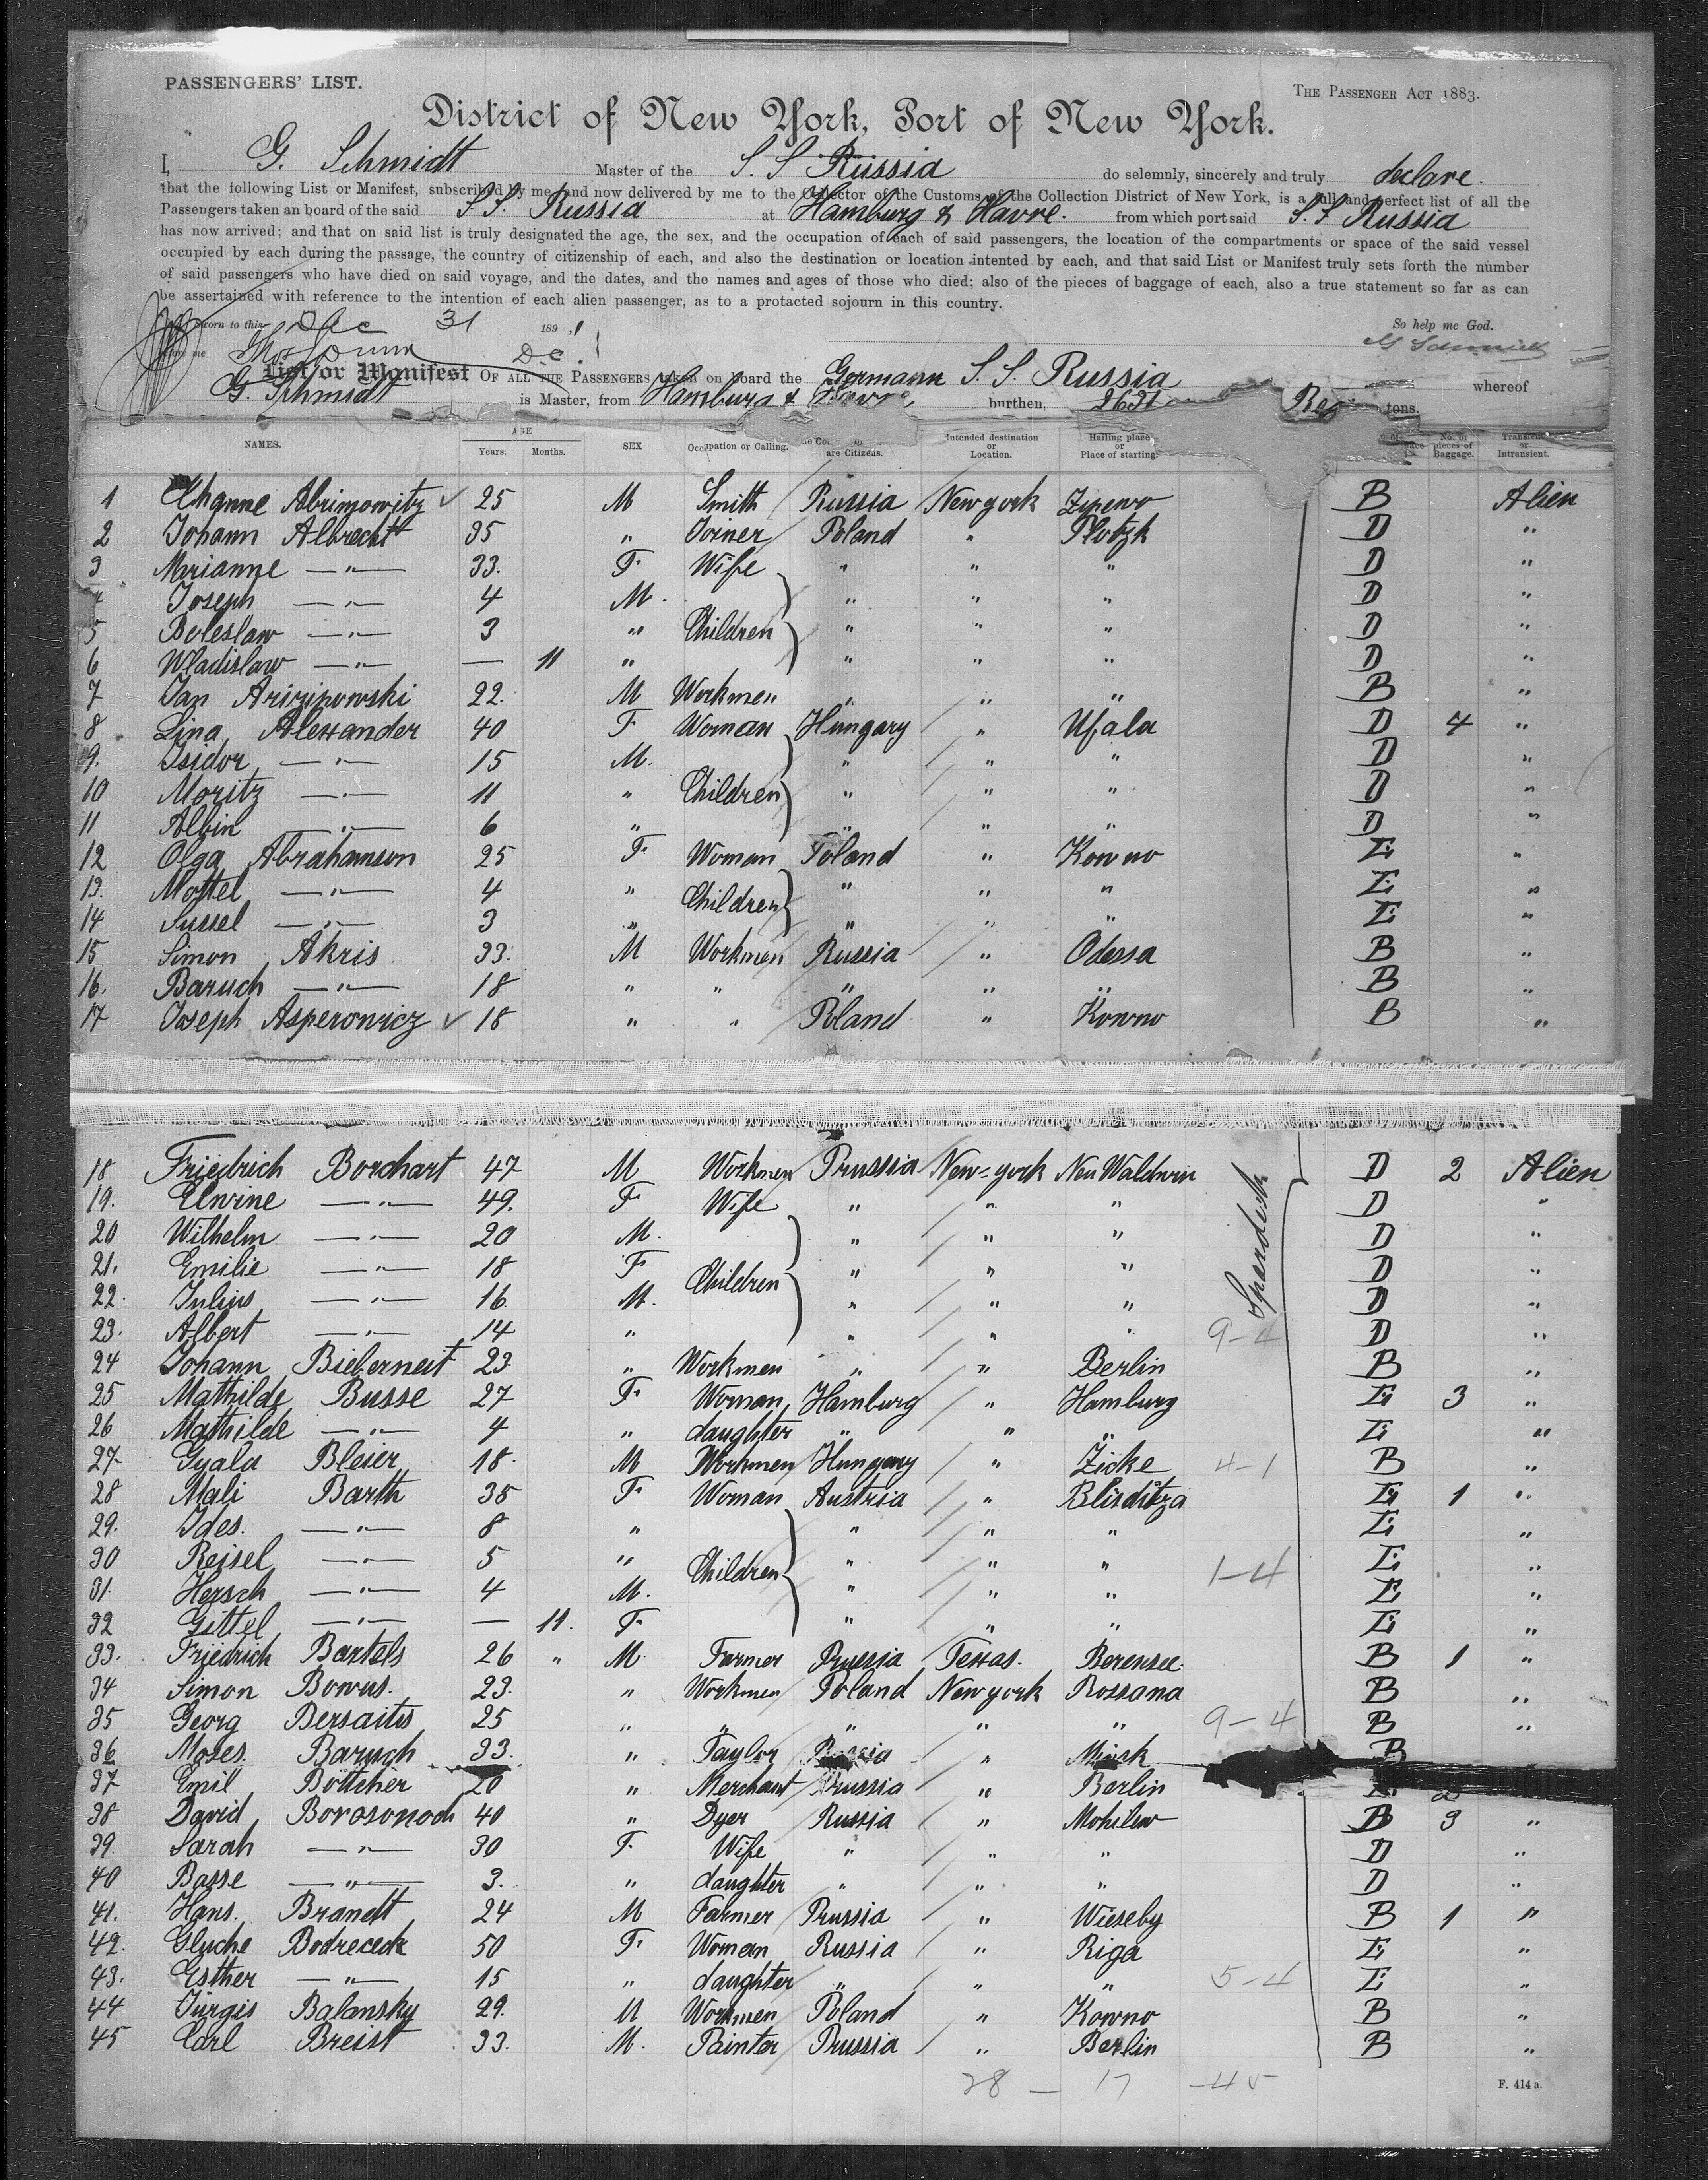 PASSENGERS' LIST.
THE PASSENGER ACT 1883.
District of New York, Port of New York.
I, G. Schmidt Master of the S. S Russia do selemnly, sincerely and truly declare.
that the following List or Manifest, subscribed by me, and now delivered by me to the Collector of the Customs of the Collection District of New York, is a full and perfect list of all the
Passengers taken an board of the said S. S. Russia at Hamburg & Havre. from which port said S. S Russia
has now arrived; and that on said list is truly designated the age, the sex, and the occupation of each of said passengers, the location of the compartments or space of the said vessel
occupied by each during the passage, the country of citizenship of each, and also the destination or location intented by each, and that said List or Manifest truly sets forth the number
of said passengers who have died on said voyage, and the dates, and the names and ages of those who died; also of the pieces of baggage of each, also a true statement so far as can
be assertained with reference to the intention of each alien passenger, as to a protacted sojourn in this country.
sworn to this Dec 31 189 1
So help me God.
me Thos Dunn D.C.
G Schmidt
List or Manifest OF ALL THE PASSENGERS taken on board the German S. S. Russia whereof
G. Schmidt is Master, from Hamburg & Havre, burthen, tons.
NAMES. AGE Years. Months. SEX Occupation or Calling. are Citizens. Intended destination or Location. Hailing place or Place of starting. No. of pieces of Baggage. Transient or Intransient.
1 Abrimowitz 25 M Smith Russia New york B Alien
2 Johann Albrecht 35 " Joiner Poland " Plotzk D "
3 Marianne —"— 33. F. Wife " " " D "
4 Joseph —"— 4 M. " " " D "
5 Boleslaw —"— 3 " Children " " " D "
6 Wladislaw —"— — 11 " " " " D "
7 Jan Arizinowski 22. M Workmen " " " B "
8 Lina Alexander 40 F Woman Hungary " Ujfala D 4 "
9. Isidor —"— 15 M. " " " D "
10 Moritz —"— 11 " Children " " " D "
11 Albin —"— 6 " " " " D "
12 Olga Abrahamson 25 F. Woman Poland " Kowno E "
13. Mottel —"— 4 " Children " " " E "
14 Sussel —"— 3 " " " " E "
15 Simon Akris 33. M Workmen Russia " Odessa B "
16. Baruch —"— 18 " " " " " B "
17 Joseph Asperowicz 18 " " Poland " Kowno B "
18 Friedrich Borchart 47 M Workmen Prussia New-york Neu Waldwin D 2 Alien
19. Elwine —"— 49. F Wife " " " D "
20 Wilhelm —"— 20 M. " " " D "
21. Emilie —"— 18 F Children " " " D "
22. Julius —"— 16. M. " " " D "
23. Albert —"— 14 " " " " 9-4 D "
24 Johann Bieberneit 23 " Workmen " " Berlin B "
25 Mathilde Busse 27 F. Woman Hamburg " Hamburg E 3 "
26 Mathilde —"— 4 " daughter " " " E "
27. Gyala Bleier 18. M Workmen Hungary " Zicke 4-1 B "
28 Mali Barth 35 F. Woman Austria " Blisditza E 1 "
29. Ides. —"— 8 " " " " E "
30 Reisel —"— 5 " Children " " " 1-4 E "
31. Hersch —"— 4 M. " " " E "
32 Gittel —"— — 11. F. " " " E "
33. Friedrich Bartels 26 " M. Farmer Prussia Texas. Berensee. B 1 "
34 Simon Bowus. 23. " Workmen Poland New york Rossana B "
35 Georg Bersaitis 25 " " " " " 9-4 B "
36 Moses. Baruch 33. " Taylor Russia " Minsk B
37 Emil Böttcher 20 " Merchant Prussia " Berlin
38 David Borosonoch 40 " Dyer Russia " Mohilew B 3 "
39. Sarah —"— 30 F. Wife " " " D "
40 Basse —"— 3. " daughter " " " D "
41. Hans. Brandt 24 M Farmer Prussia " Wieseby B 1 "
42. Gluche Bodrececk 50 F. Woman Russia " Riga E "
43. Esther —"— 15 " daughter " " " 5-4 E "
44 Jürgis Balansky 29. M Workmen Poland " Kowno B "
45 Carl Breist 33. M. Painter Prussia " Berlin B "
28 — 17 -45
F. 414 a.